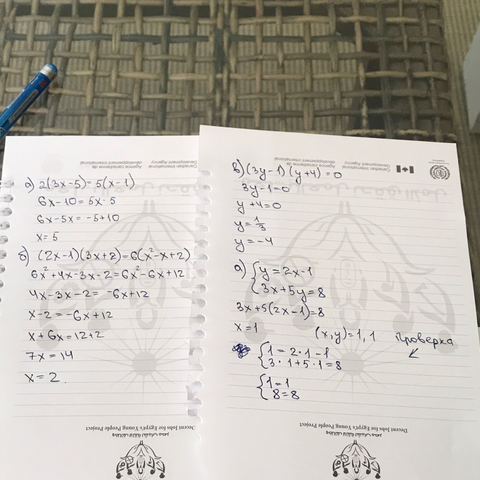 а) 2(3x-5)=5(x-1)
6x-10=5x-5
6x-5x=-5+10
x=5
б) (2x-1)(3x+2)=6(x²-x+2)
6x²+4x-3x-2=6x²-6x+12
4x-3x-2=-6x+12
x-2=-6x+12
x+6x=12+2
7x=14
x=2.
Decent Jobs for Egypt's Young People Project
Canadian International Development Agency
Agence canadienne de développement international
в) (3y-1)(y+4)=0
3y-1=0
y+4=0
y=1/3
y=-4
а) {y=2x-1
3x+5y=8
3x+5(2x-1)=8
x=1
(x,y)=1,1 Проверка
{1=2·1-1
3·1+5·1=8
{1=1
8=8
Decent Jobs for Egypt's Young People Project
Canadian International Development Agency
Agence canadienne de développement international